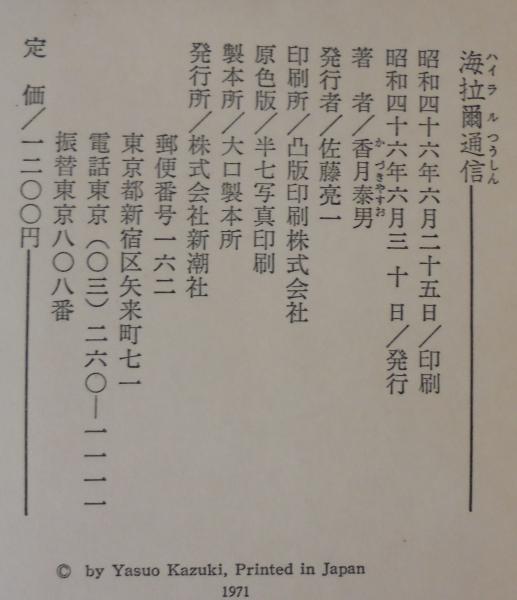 海拉爾通信
ハイラルつうしん
昭和四十六年六月二十五日/印刷
昭和四十六年六月三十日/発行
著者/香月泰男
かづきやすお
発行者/佐藤亮一
印刷所/凸版印刷株式会社
原色版/半七写真印刷
製本所/大口製本所
発行所/株式会社新潮社
郵便番号一六二
東京都新宿区矢来町七一
電話東京(〇三)二六〇―一一一一
振替東京八〇八番
定価/一二〇〇円
© by Yasuo Kazuki, Printed in Japan
1971